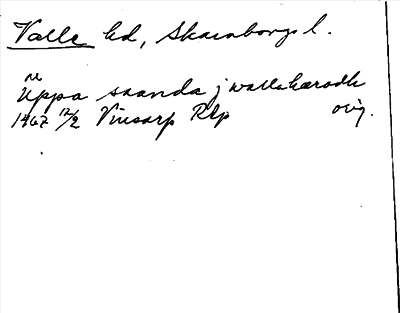 Valle hd, Skaraborgs l.
Uppa saanda j wallahæradh
1467 12/2 Vinsarp RAp orig.